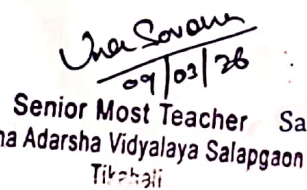 09/03/26
Senior Most Teacher Sa
na Adarsha Vidyalaya Salapgaon